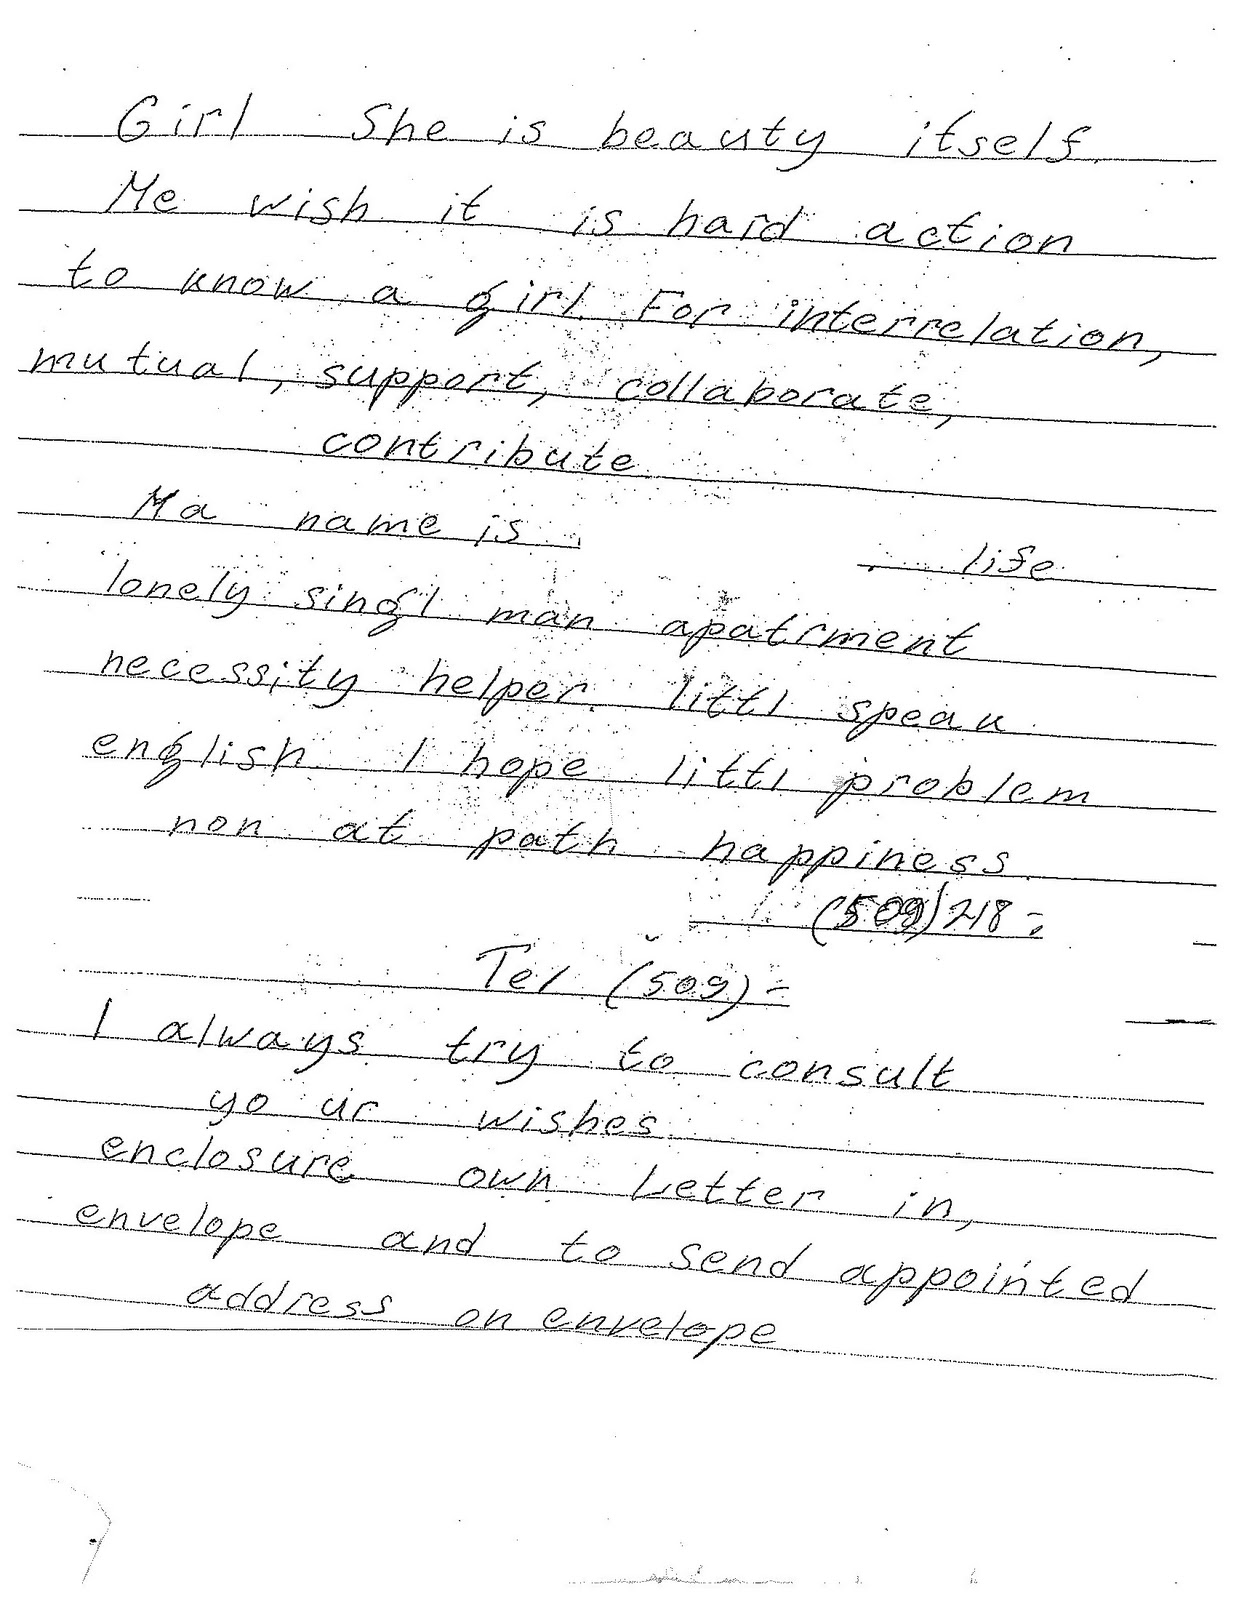 Girl She is beauty itself.
Me wish it is hard action
to know a girl. For interrelation,
mutual, support, collaborate,
contribute
Ma name is
life
lonely singl man apatrment
necessity helper. littl speak
english I hope littl problem
non at path happiness.
(509) 218-
Tel (509)-
I always try to consult
yo ur wishes
enclosure own Letter in,
envelope and to send appointed
address on envelope